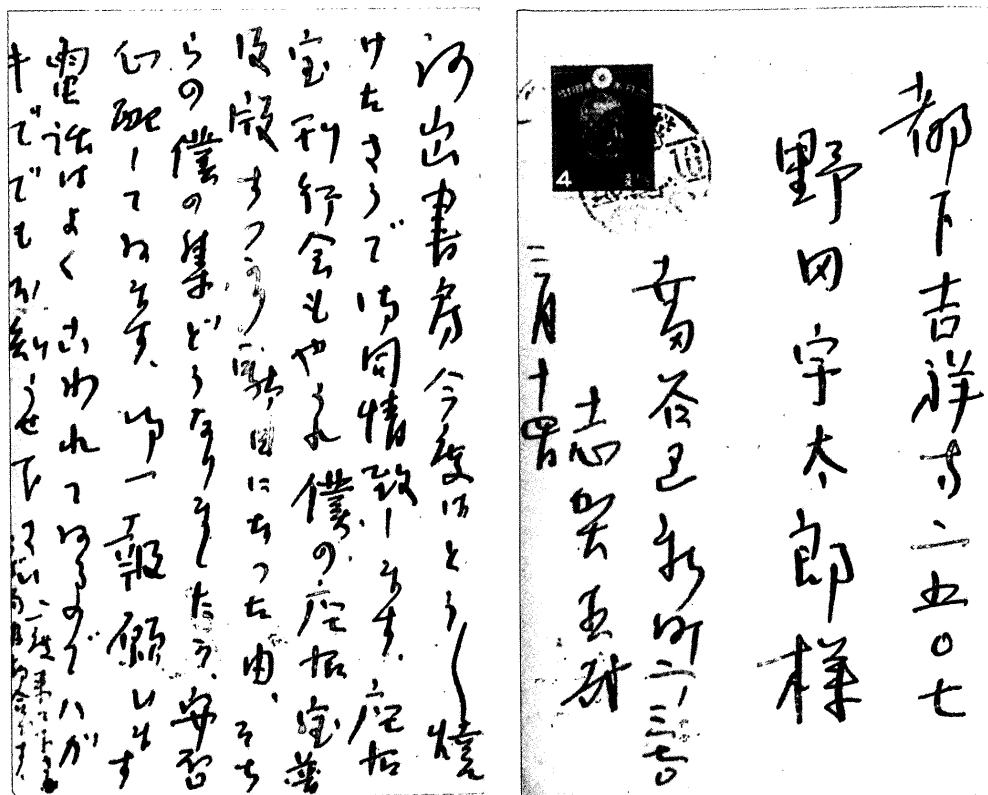 都下吉祥寺二五〇七
野田宇太郎様
世田谷区新町二ノ三七〇
志賀直哉
二月十四日
4
河出書房今度はとうとう焼
けたさうで御同情致します、座右
宝刊行会もやられ僕の座右宝普
及版すつかり駄目になつた由、そち
らの僕の集どうなりましたか、安否
心配してゐます、御一報願ひます
電話はよくこわれてゐるのでハガ
キででもお知らせ下さい